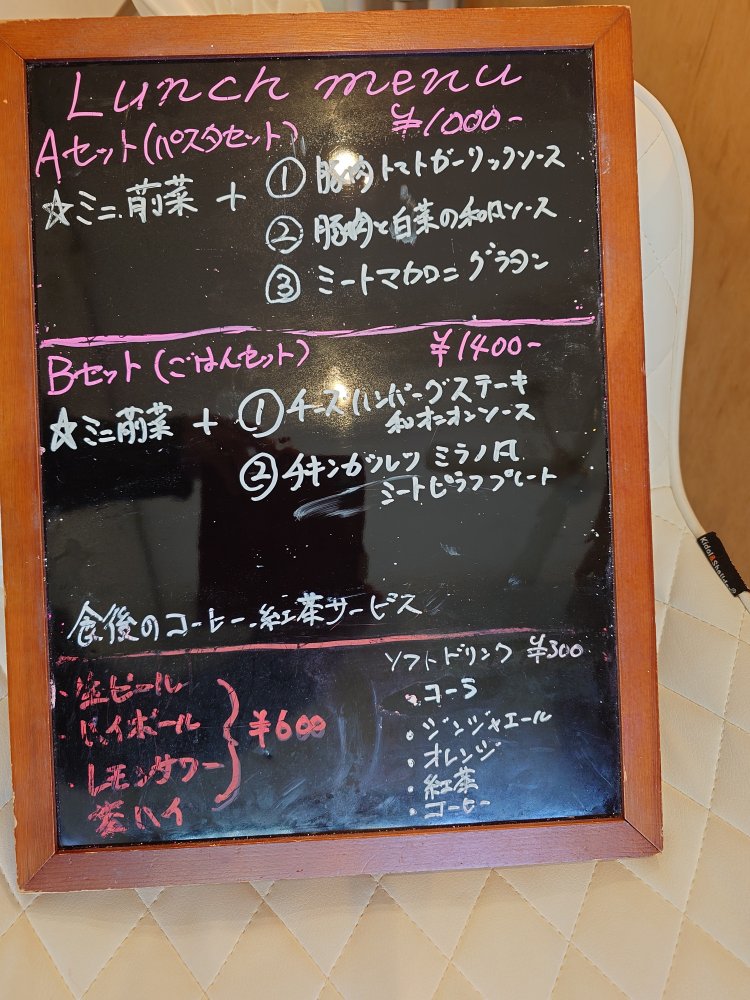 Lunch menu
Aセット(パスタセット) ¥1000-
☆ミニ前菜 + ① 豚肉トマトガーリックソース
② 豚肉と白菜の和風ソース
③ ミートマカロニグラタン
Bセット(ごはんセット) ¥1400-
☆ミニ前菜 + ① チーズハンバーグステーキ
和オニオンソース
② チキンカツレツ ミラノ風
ミートピラフプレート
食後のコーヒー、紅茶サービス
・生ビール
・ハイボール
・レモンサワー
・茶ハイ
¥600
ソフトドリンク ¥300
・コーラ
・ジンジャエール
・オレンジ
・紅茶
・コーヒー